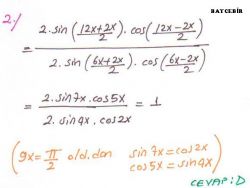 BAYCEBİR
2.)
2.sin(12x+2x/2).cos(12x-2x/2)
= 2.sin(6x+2x/2).cos(6x-2x/2)
= 2.sin7x.cos5x / 2.sin4x.cos2x = 1
(9x=π/2 old.dan sin7x=cos2x
cos5x=sin4x)
CEVAP:D